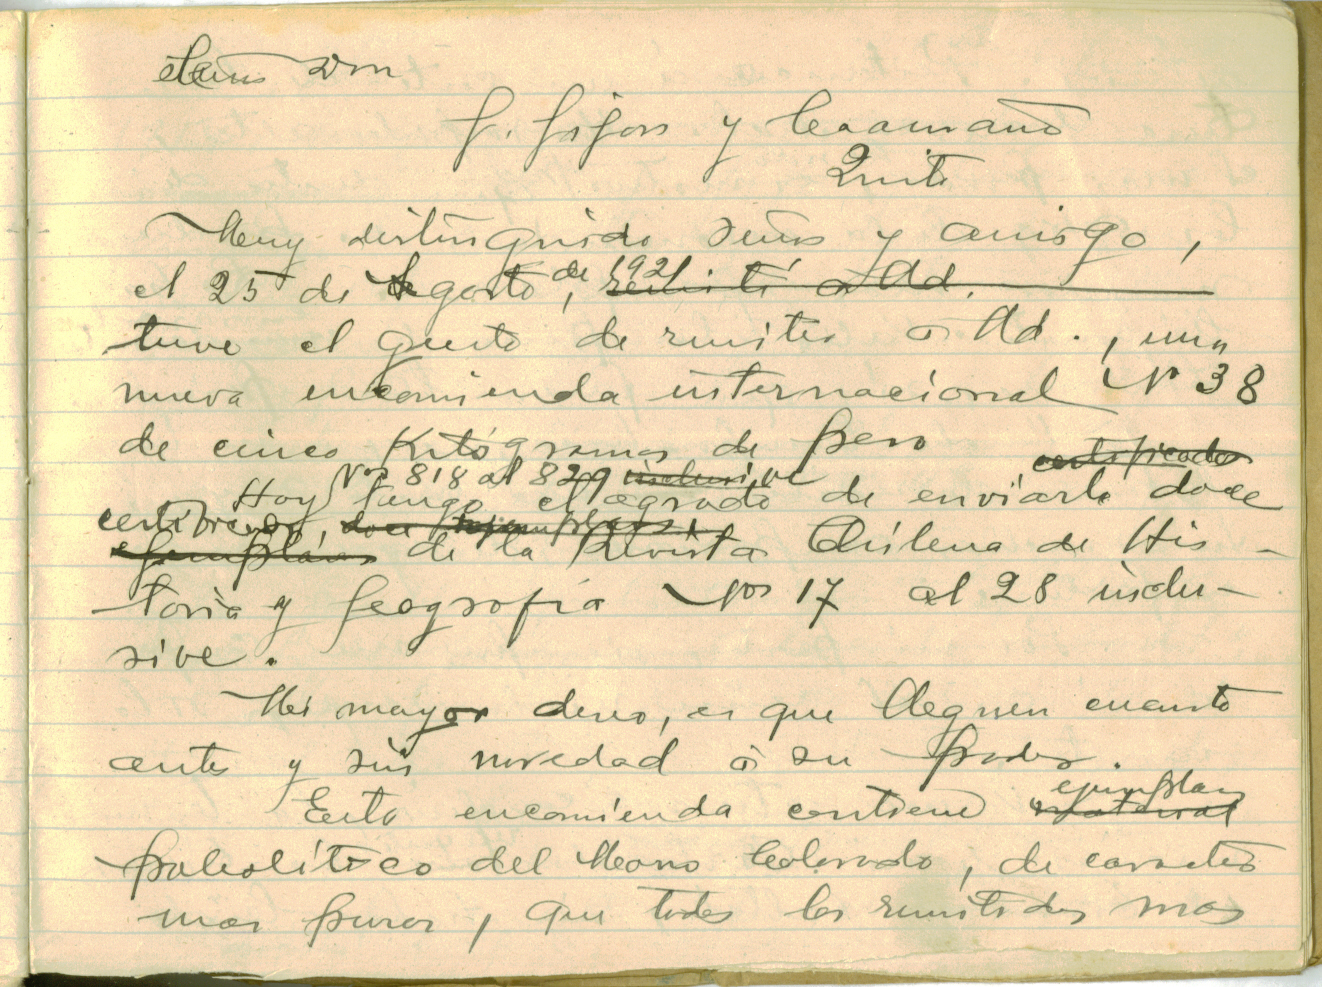 Señor Don
J. Jijon y Caamaño
Quito
Muy distinguido Señor y amigo,
el 25 de Agosto de 1921, remiti a Ud.
tuve el gusto de remitir a Ud., una
nueva encomienda internacional Nº 38
de cinco Kilógramos de peso certificados
Nos 818 al 829 inclusive
Hoy tengo el agrado de enviarle doce
certificados, doce ejemplares
ejemplares de la Revista Chilena de His-
toria y Geografía Nos 17 al 28 inclu-
sive.
Mi mayor deseo, es que lleguen cuanto
antes y sin novedad a su poder.
ejemplares
Esta encomienda contiene material
paleolítico del Morro Colorado, de caracter
mas puros, que todos los remitidos mas